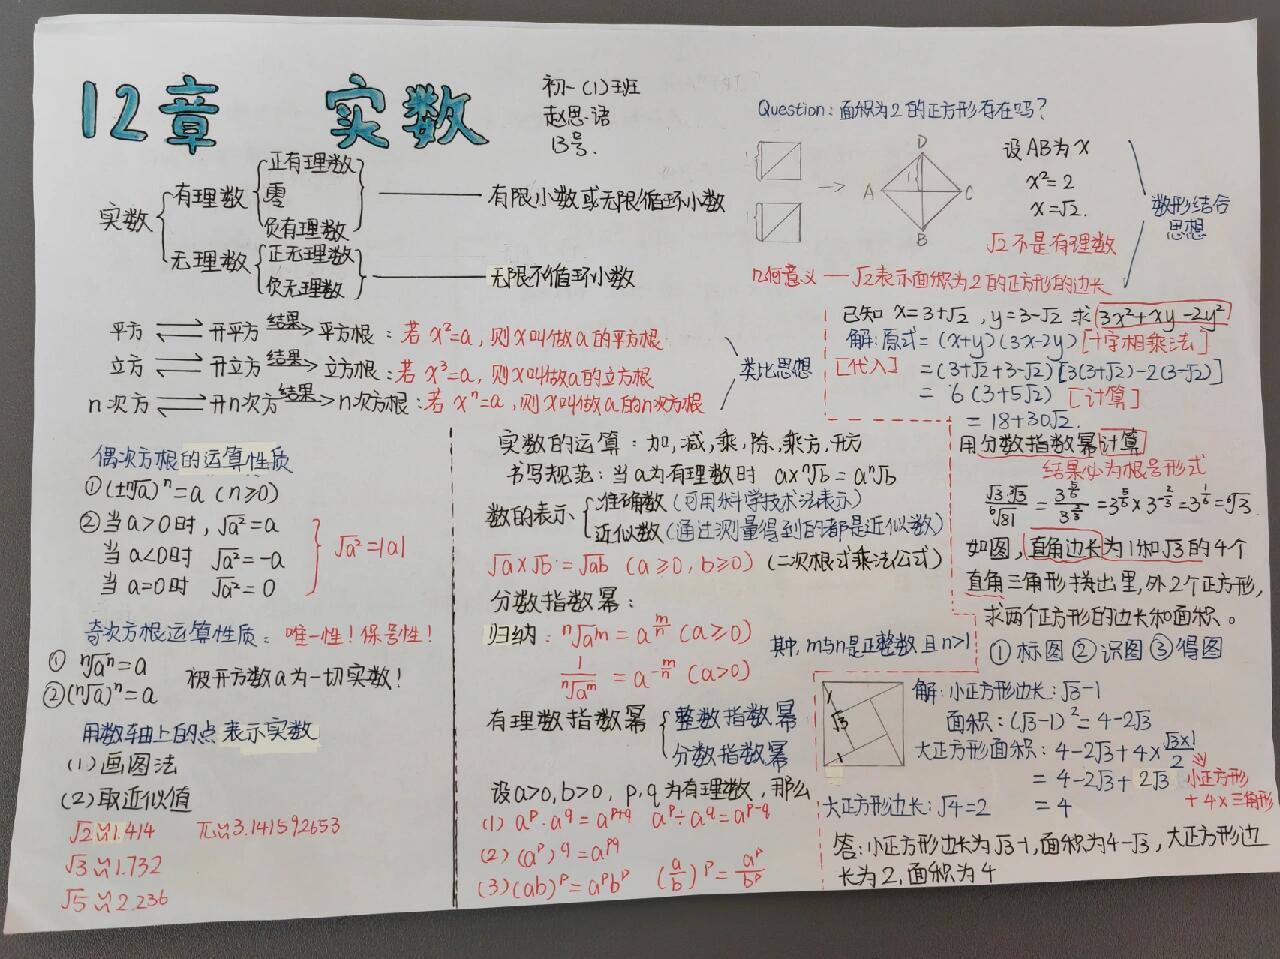 12章 实数
初一(1)班
赵思语
13号.
实数
有理数
正有理数
零
负有理数
有限小数或无限循环小数
无理数
正无理数
负无理数
无限不循环小数
Question: 面积为2的正方形存在吗?
A B C D 1
设AB为x
x²=2
x=√2.
√2不是有理数
几何意义 — √2表示面积为2的正方形的边长
数形结合
思想
平方 ⇌ 开平方 结果→ 平方根: 若x²=a, 则x叫做a的平方根
立方 ⇌ 开立方 结果→ 立方根: 若x³=a, 则x叫做a的立方根
n次方 ⇌ 开n次方 结果→ n次方根: 若xⁿ=a, 则x叫做a的n次方根
类比思想
已知 x=3+√2, y=3-√2 求 3x²+xy-2y²
解:原式=(x+y)(3x-2y) [十字相乘法]
[代入] =(3+√2+3-√2)[3(3+√2)-2(3-√2)]
=6(3+5√2) [计算]
=18+30√2.
偶次方根的运算性质
①(±ⁿ√a)ⁿ=a (n≥0)
②当a>0时, √a²=a
当a<0时 √a²=-a
当a=0时 √a²=0
√a²=|a|
奇次方根运算性质: 唯一性! 保号性!
① ⁿ√aⁿ=a
②(ⁿ√a)ⁿ=a
被开方数a为一切实数!
用数轴上的点表示实数
(1)画图法
(2)取近似值
√2≈1.414 π≈3.141592653
√3≈1.732
√5≈2.236
实数的运算: 加,减,乘,除,乘方,开方
书写规范: 当a为有理数时 a×ⁿ√b=aⁿ√b
数的表示
准确数(可用科学技术法表示)
近似数(通过测量得到的都是近似数)
√a×√b=√ab (a≥0, b≥0) (二次根式乘法公式)
分数指数幂:
归纳: ⁿ√aᵐ=a^(m/n) (a≥0)
1/ⁿ√aᵐ=a^(-m/n) (a>0)
其中, m与n是正整数且n>1
有理数指数幂
整数指数幂
分数指数幂
设a>0, b>0, p, q为有理数, 那么
(1) aᵖ·a^q=a^(p+q) aᵖ÷a^q=a^(p-q)
(2) (aᵖ)^q=a^(pq)
(3) (ab)ᵖ=aᵖbᵖ (a/b)ᵖ=aᵖ/bᵖ
用分数指数幂计算
结果必为根号形式
如图, 直角边长为1和√3的4个
直角三角形拼出里,外2个正方形,
求两个正方形的边长和面积。
①标图 ②识图 ③得图
√3 1
解: 小正方形边长: √3-1
面积: (√3-1)²=4-2√3
大正方形面积: 4-2√3+4×(√3×1)/2
=4-2√3+2√3
=4
小正方形
+4×三角形
大正方形边长: √4=2
答: 小正方形边长为√3-1, 面积为4-√3, 大正方形边
长为2, 面积为4